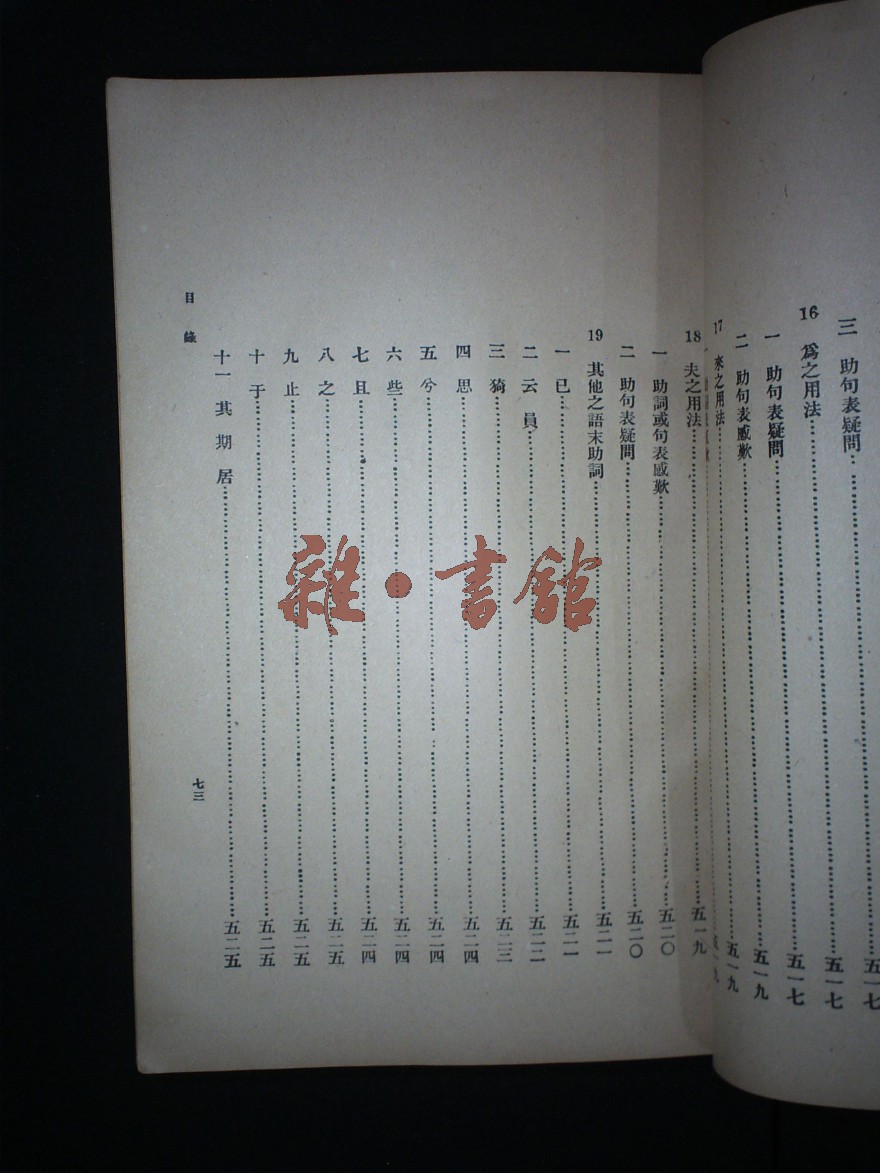 三 助句表疑問……五一七
16 爲之用法……五一七
一 助句表疑問……五一七
二 助句表感歎……五一九
17 來之用法……五一九
18 夫之用法……五一九
一 助詞或句表感歎……五二〇
二 助句表疑問……五二〇
19 其他之語末助詞……五二一
一 已……五二一
二 云 員……五二二
三 猗……五二三
四 思……五二四
五 兮……五二四
六 些……五二四
七 且……五二四
八 之……五二五
九 止……五二五
十 于……五二五
十一 其 期 居……五二五
目錄
七三
雜·書館